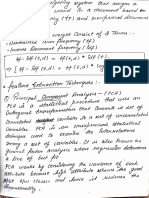 weighting system that assign a
word in a document based on
frequency (tf) and reciprocal document
weight consist of 2 Terms:-
- Normalised Term Frequency (tf)
- Inverse Document Frequency (idf)
* Feature Extraction Techniques:-
(1) Principal Component Analysis - (PCA)
PCA is a statistical procedure that uses an
orthogonal transformation that converts a set of
correlated variables to a set of uncorrelated
variables. PCA is an unsupervised statistical
technique used to examine the interrelations
among a set of variables. It is also known as
general factor analysis where regression determines
a line of best fit.
PCA works by considering the variance of each
attribute because high attribute shows the good
split b/w classes and hence it reduces the
dimensionality.